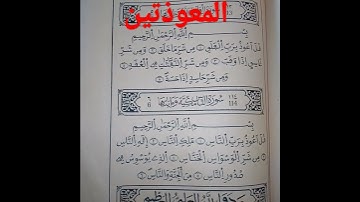 المعوذتين
بِسْمِ اللَّهِ الرَّحْمَٰنِ الرَّحِيمِ
قُلْ أَعُوذُ بِرَبِّ الْفَلَقِ مِن شَرِّ مَا خَلَقَ وَمِن شَرِّ
غَاسِقٍ إِذَا وَقَبَ وَمِن شَرِّ النَّفَّاثَاتِ فِي الْعُقَدِ
وَمِن شَرِّ حَاسِدٍ إِذَا حَسَدَ
١١٤ سُورَةُ النَّاسِ ٦
114 6
بِسْمِ اللَّهِ الرَّحْمَٰنِ الرَّحِيمِ
قُلْ أَعُوذُ بِرَبِّ النَّاسِ مَلِكِ النَّاسِ إِلَٰهِ النَّاسِ
مِن شَرِّ الْوَسْوَاسِ الْخَنَّاسِ الَّذِي يُوَسْوِسُ فِي
صُدُورِ النَّاسِ مِنَ الْجِنَّةِ وَالنَّاسِ
صدق الله العلي العظيم